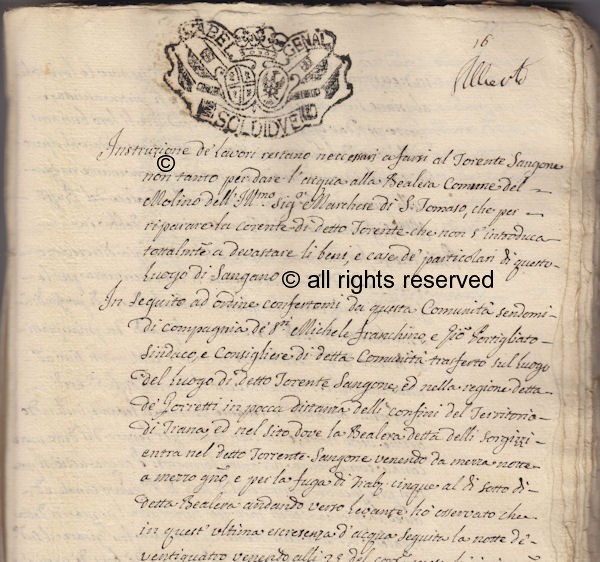 GABEL GENAL
SOLDI DVE
16
Alberto
Instruzione de' lavori restano neccessari a farsi al Torente Sangone
non tanto per dare l'acqua alla Bealera Comune del
Molino dell' Ill.mo Sig.r Marchese di S. Tomaso, che per
riparare la corente di detto Torente che non s'introduca
totalmte a devastare li beni, e case de' particolari di questo
Luogo di Sangano
© all rights reserved
In seguito ad ordine confertomi da questa Comunità sendomi
di compagnia de' Sri Michele Franchino, e Gio Portigliato
Sindaco, e Consigliere di detta Comunità trasferto sul luogo
del Luogo di detto Torente Sangone, ed nella regione detta
de' Gorretti in pocca distanza delli confini del Territorio
di Trana, ed nel sito dove la Bealera detta delli
entra nel detto Torrente Sangone venendo da mezza notte
a mezzo gno e per la fuga di Trab. cinque al di sotto di
detta Bealera andando verso Levante ho osservato che
in quest' ultima escresenza d'acqua seguita la notte de'
ventiquatro venendo alli 25 del